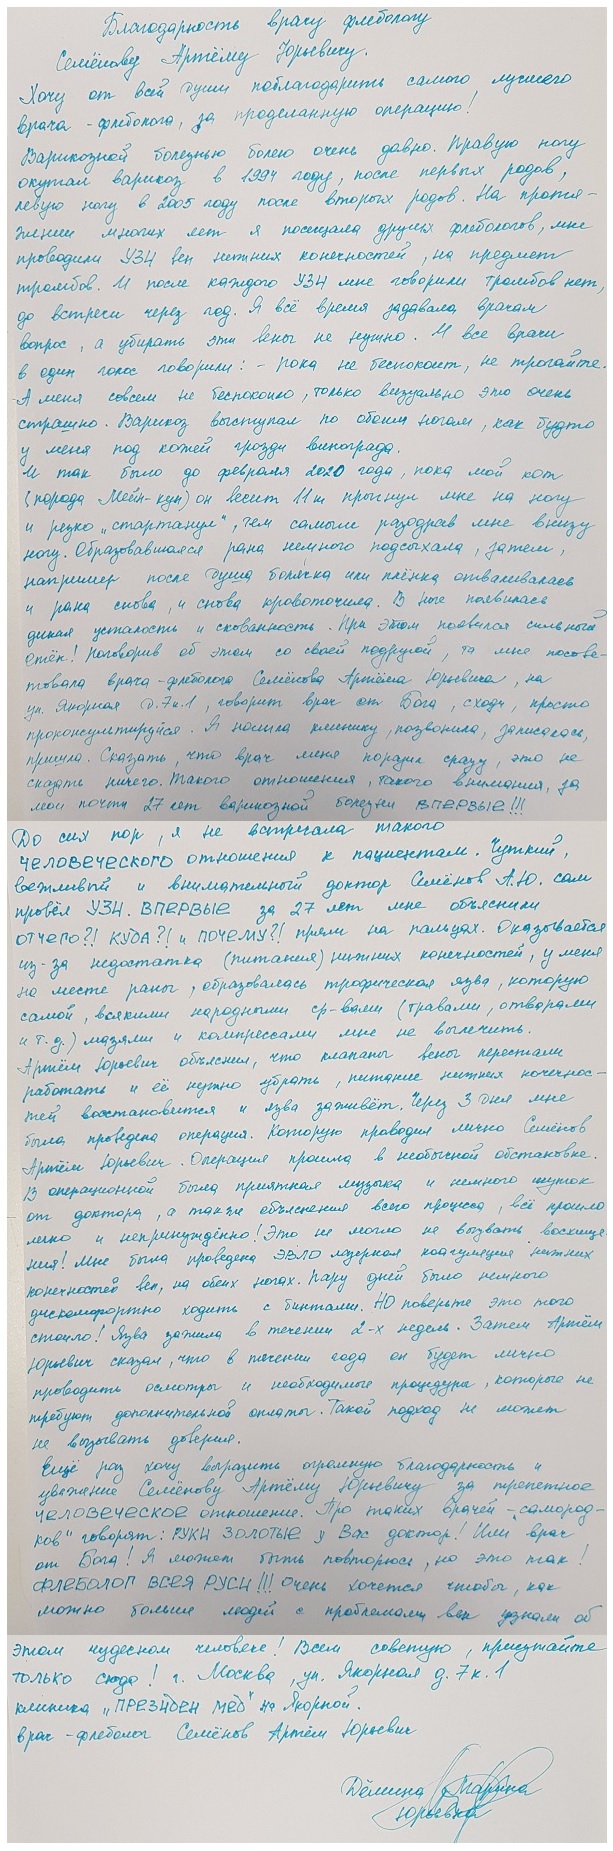 Благодарность врачу флебологу
Семёнову Артёму Юрьевичу.
Хочу от всей души поблагодарить самого лучшего
врача-флеболога, за проделанную операцию!
Варикозной болезнью болею очень давно. Правую ногу
окутал варикоз в 1994 году, после первых родов,
левую ногу в 2005 году после вторых родов. На протя-
жении многих лет я посещала других флебологов, мне
проводили УЗИ вен нижних конечностей, на предмет
тромбов. И после каждого УЗИ мне говорили тромбов нет,
до встречи через год. Я всё время задавала врачам
вопрос, а убирать эти вены не нужно. И все врачи
в один голос говорили: - пока не беспокоит, не трогайте.
А меня совсем не беспокоило, только визуально это очень
страшно. Варикоз выступал по обоим ногам, как будто
у меня под кожей грозди винограда.
И так было до февраля 2020 года, пока мой кот
(порода Мейн-кун) он весит 11 кг прыгнул мне на ногу
и резко "стартанул", тем самым разодрав мне внизу
ногу. Образовавшаяся рана немного подсыхала, затем,
например после душа болячка или плёнка отваливалась
и рана снова, и снова кровоточила. В ноге появилась
дикая усталость и скованность. При этом появился сильный
отёк! Поговорив об этом со своей подругой, та мне посове-
товала врача-флеболога Семёнова Артёма Юрьевича, на
ул. Якорная д.7к.1, говорит врач от Бога, сходи, просто
проконсультируйся. Я нашла клинику, позвонила, записалась,
пришла. Сказать, что врач меня поразил сразу, это не
сказать ничего. Такого отношения, такого внимания, за
мои почти 27 лет варикозной болезни ВПЕРВЫЕ!!!
До сих пор, я не встречала такого
ЧЕЛОВЕЧЕСКОГО отношения к пациентам. Чуткий,
вежливый и внимательный доктор Семёнов А.Ю. сам
провёл УЗИ. ВПЕРВЫЕ за 27 лет мне объяснили
ОТЧЕГО?! КУДА?! и ПОЧЕМУ?! прям на пальцах. Оказывается
из-за недостатка (питания) нижних конечностей, у меня
на месте раны, образовалась трофическая язва, которую
самой, всякими народными ср-вами (травами, отварами
и т.д.) мазями и компрессами мне не вылечить.
Артём Юрьевич объяснил, что клапаны вены перестали
работать и её нужно убрать, питание нижних конечнос-
тей восстановится и язва заживёт. Через 3 дня мне
была проведена операция. Которую проводил лично Семёнов
Артём Юрьевич. Операция прошла в необычной обстановке.
В операционной была приятная музыка и немного шуток
от доктора, а также объяснения всего процесса, всё прошло
легко и непринуждённо! Это не могло не вызвать восхище-
ния! Мне была проведена ЭВЛО лазерная коагуляция нижних
конечностей вен, на обеих ногах. Пару дней было немного
дискомфортно ходить с бинтами. НО поверьте это того
стоило! Язва зажила в течении 2-х недель. Затем Артём
Юрьевич сказал, что в течении года он будет лично
проводить осмотры и необходимые процедуры, которые не
требуют дополнительной оплаты. Такой подход не может
не вызывать доверия.
Ещё раз хочу выразить огромную благодарность и
уважение Семёнову Артёму Юрьевичу за трепетное
ЧЕЛОВЕЧЕСКОЕ отношение. Про таких врачей - "самород-
ков" говорят: РУКИ ЗОЛОТЫЕ у Вас доктор! Или врач
от Бога! Я может быть повторюсь, но это так!
ФЛЕБОЛОГ ВСЕЯ РУСИ!!! Очень хочется чтобы, как
можно больше людей с проблемами вен узнали об
этом чудесном человеке! Всем советую, приезжайте
только сюда! г. Москва, ул. Якорная д. 7к. 1
клиника "ПРЕЗИДЕН МЕД" на Якорной.
врач-флеболог Семёнов Артём Юрьевич
Дёмина Марина
Юрьевна